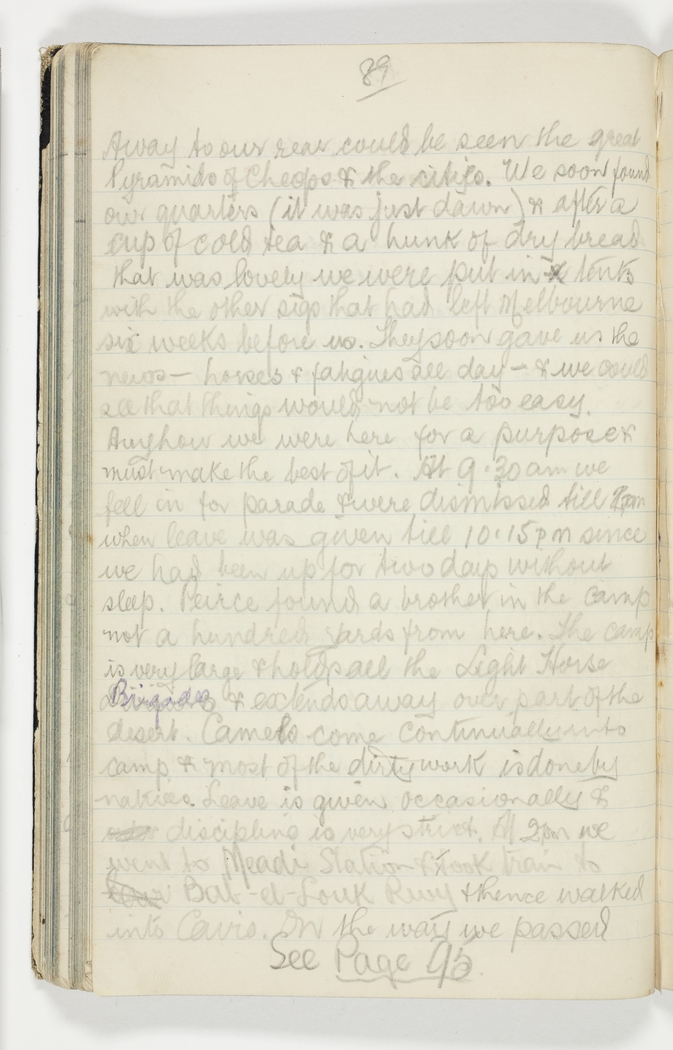 89
Away to our rear could be seen the great
Pyramids of Cheops & the citys. We soon found
our quarters (it was just dawn) & after a
cup of cold tea & a hunk of dry bread
that was lovely we were put in tents
with the other sigs that had left Melbourne
six weeks before us. They soon gave us the
news - horses & fatigues all day - & we could
see that things would not be too easy.
Anyhow we were here for a purpose &
must make the best of it. At 9.30 am we
fell in for parade & were dismissed till pm
when leave was given till 10.15 pm since
we had been up for two days without
sleep. Peirce found a brother in the camp
not a hundred yards from here. The camp
is very large & holds all the Light Horse
Brigades & extends away over part of the
desert. Camels come continually into
camp & most of the dirty work is done by
natives. Leave is given occasionally &
discipline is very strict. At 2 pm we
went to Meadi Station & took train to
Bab-el-Louk Rwy & thence walked
into Cairo. On the way we passed
See Page 95